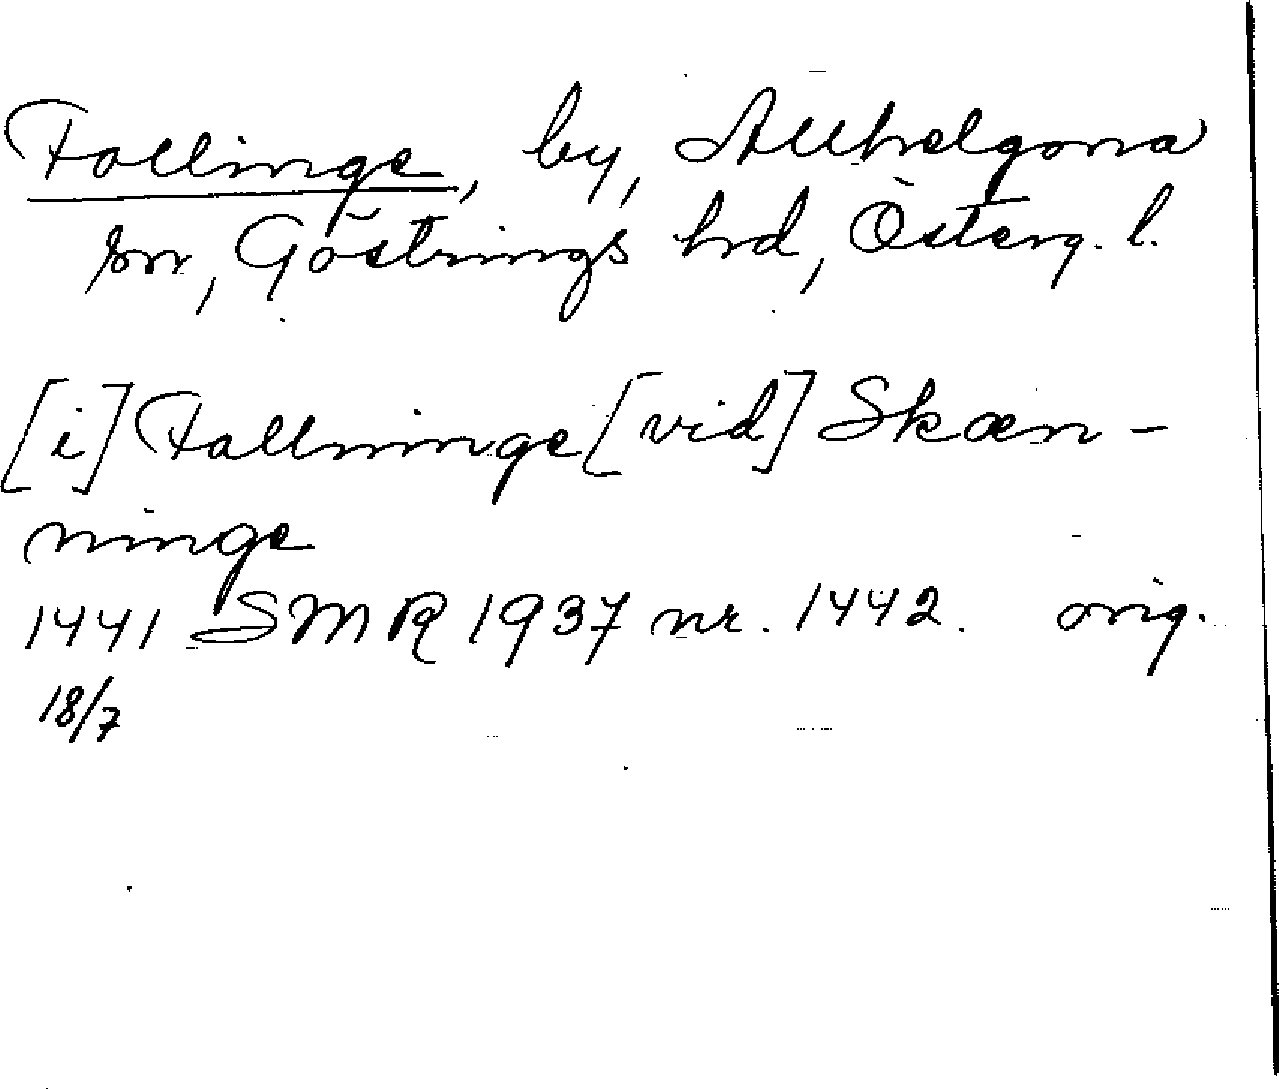 Follinge, by, Allhelgona
sn, Göstrings hrd, Österg. l.
[i] Fallninge [vid] Skæn-
ninge
1441 SMR 1937 nr. 1442. orig.
18/7